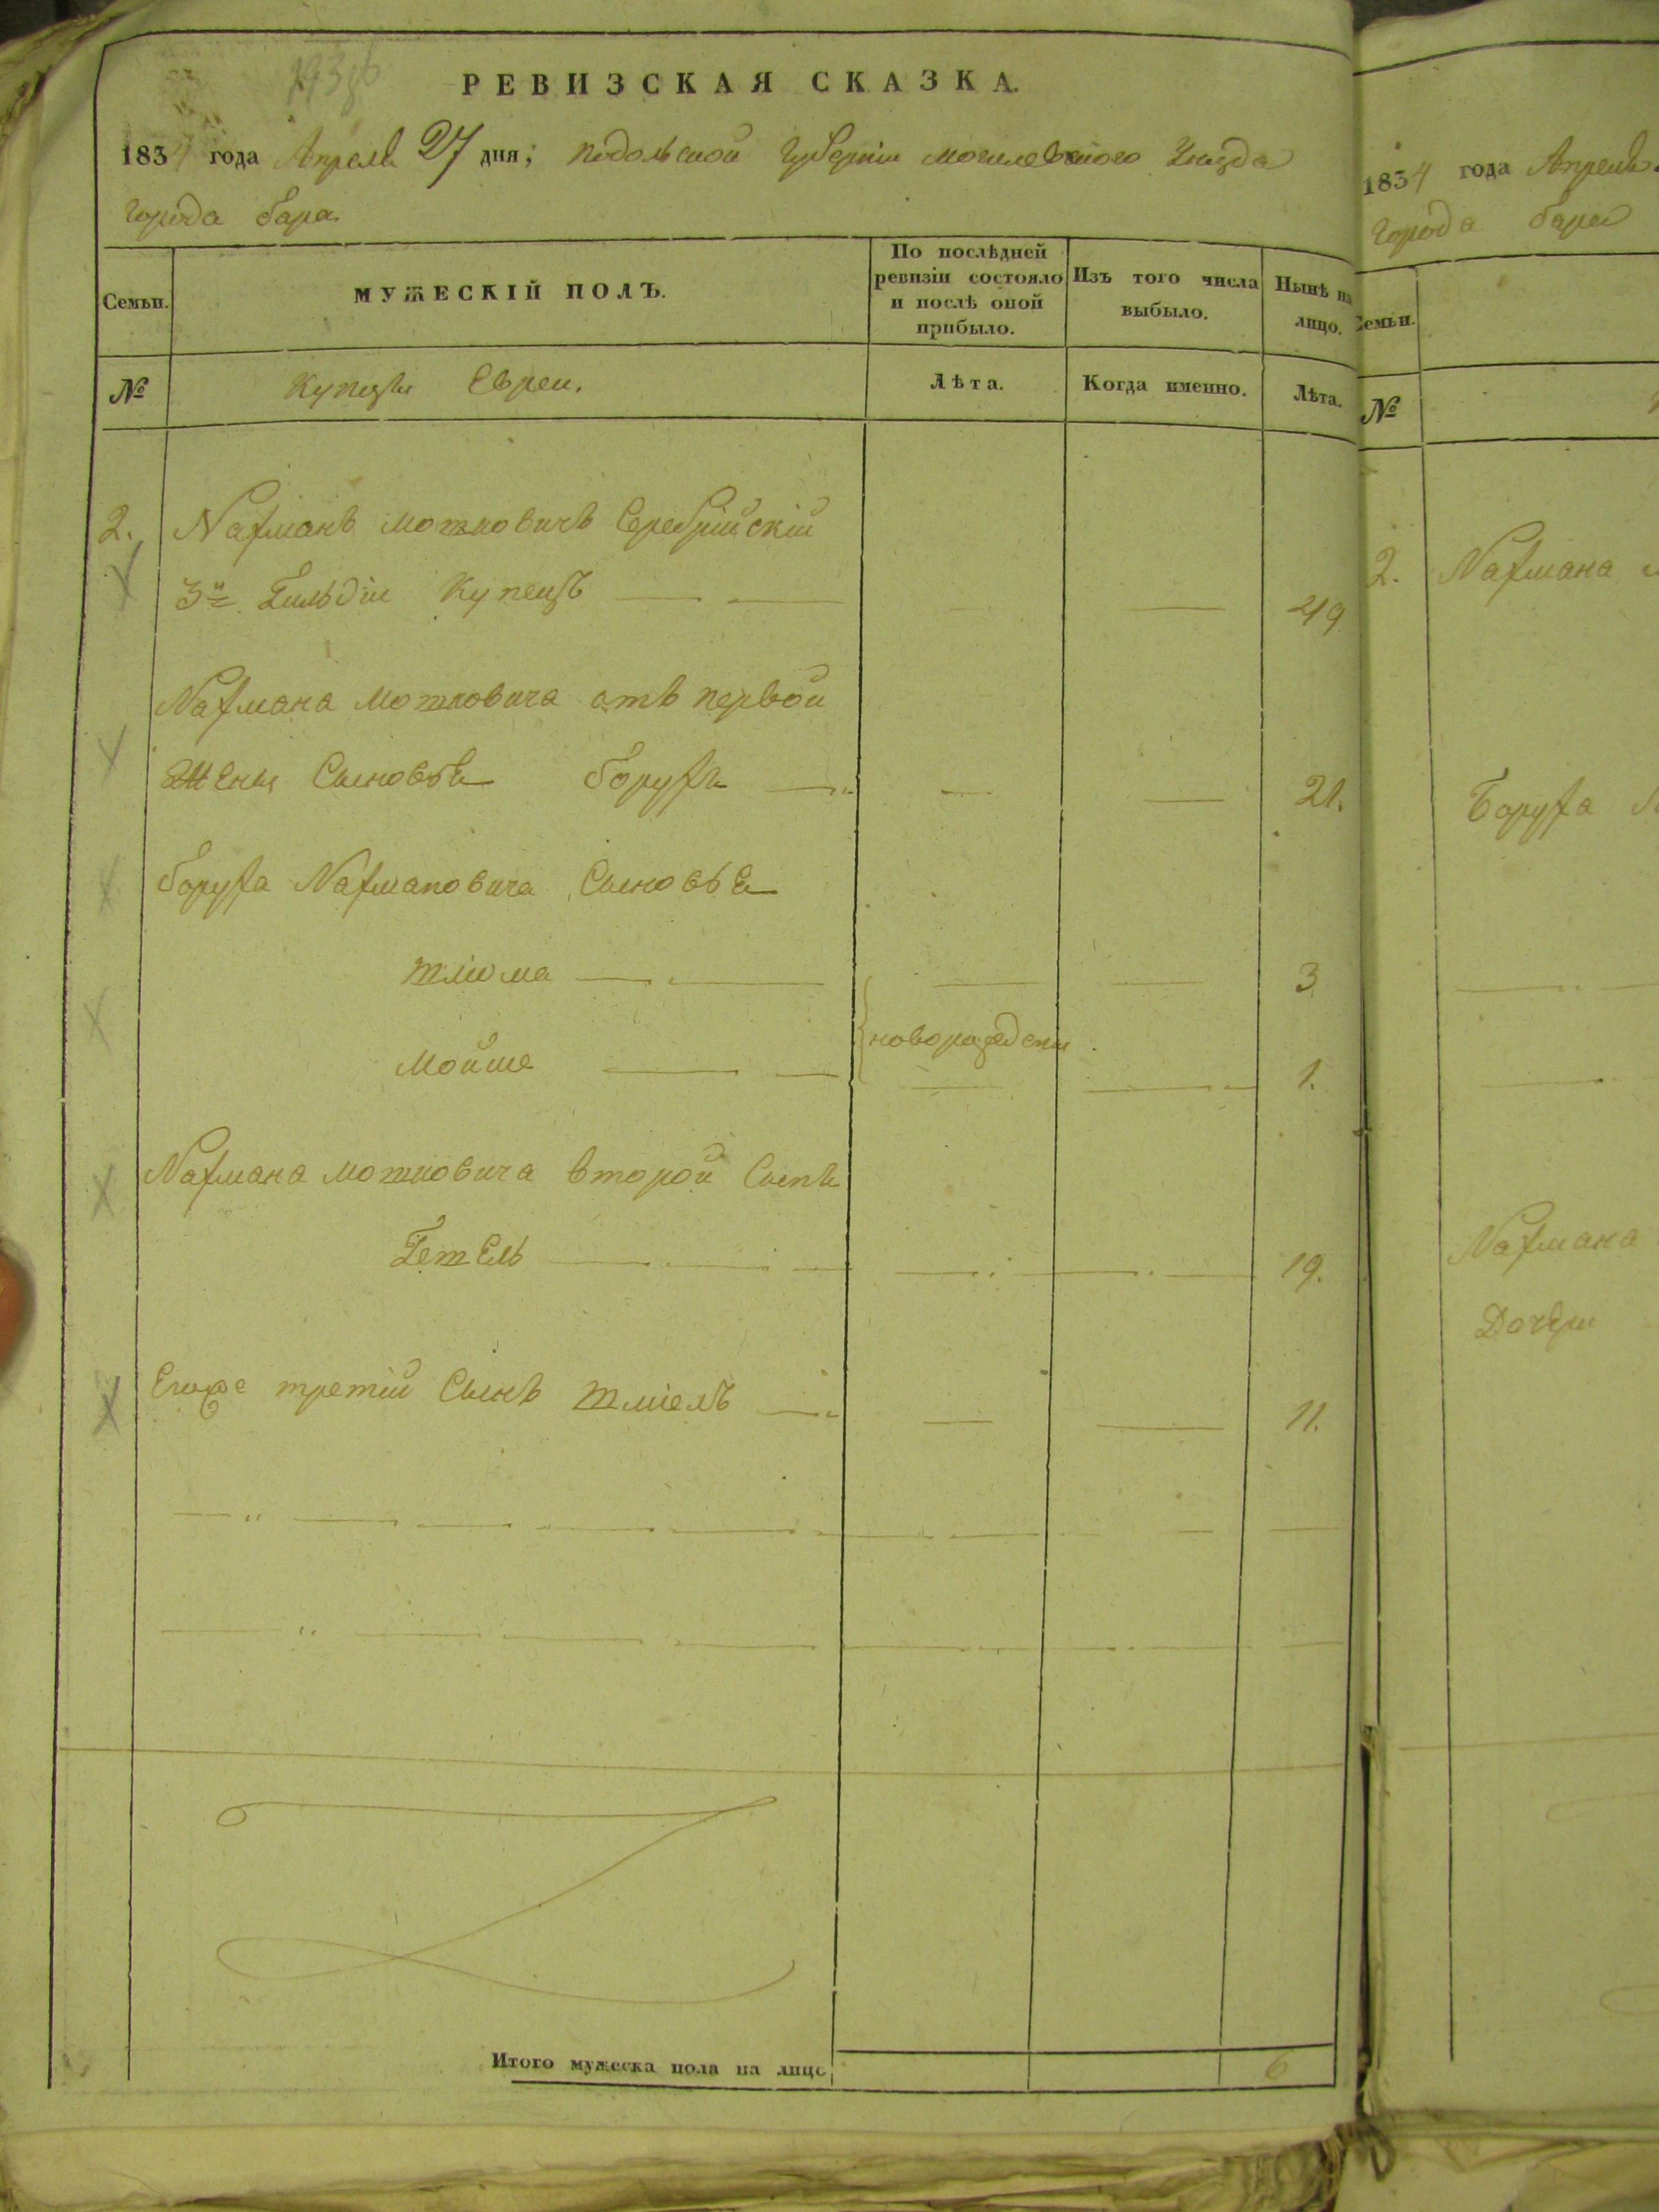 РЕВИЗСКАЯ СКАЗКА.
1834 года Апреля 27 дня; Подольской Губерніи Могилевского Уезда
Города Бара
Семьи.
МУЖЕСКІЙ ПОЛЪ.
По послѣдней
ревизіи состояло
и послѣ оной
прибыло.
Изъ того числа
выбыло.
Нынѣ на
лицо.
№
Купцы Евреи.
Лѣта.
Когда именно.
Лѣта.
2. Нахманъ Мотковичъ Серебрійскій
3й Гильдіи Купецъ 49
Нахмана Мотковича отъ первой
Жены Сыновья Борухъ 21.
Боруха Нахмановича Сыновья
Шлиома 3
новорожденны
Мойше 1.
Нахмана Мотковича второй Сынъ
Гетель 19.
Егоже третій Сынъ Шміелъ 11.
Итого мужеска пола на лицо 6
1834 года Апреля
Города Бара
Семьи.
№
2. Нахмана
Боруха
Нахмана
Дочери